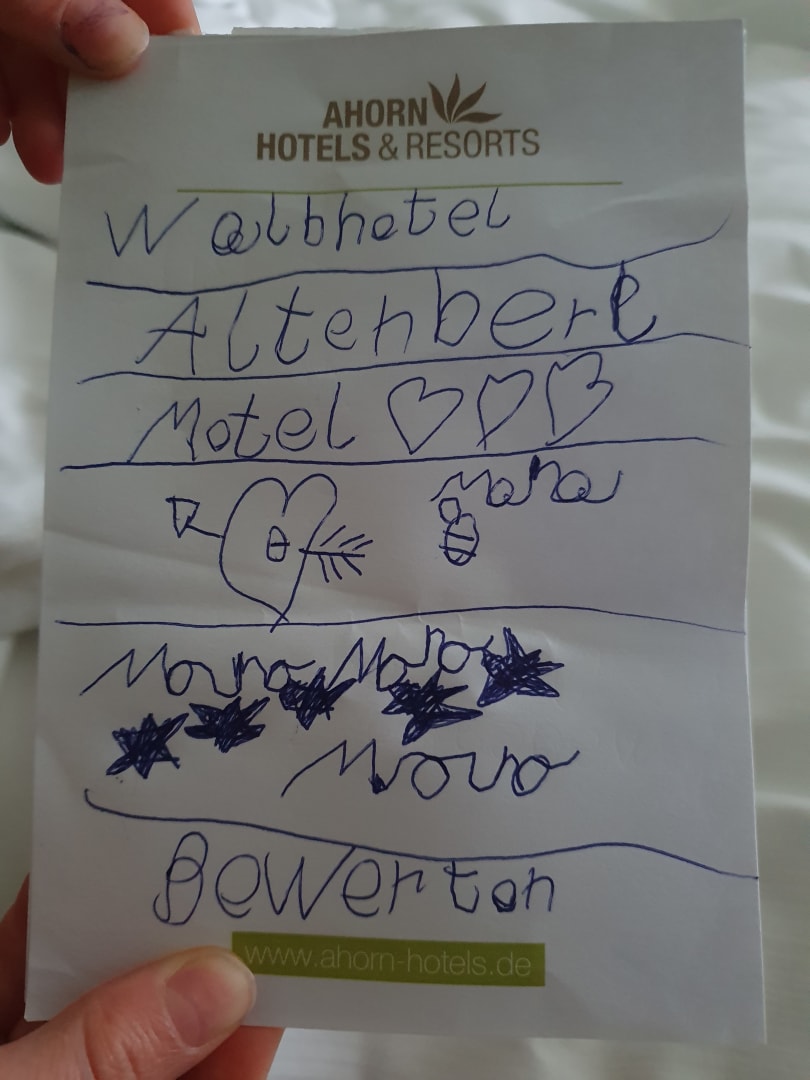 AHORN
HOTELS & RESORTS
Walbhotel
Altenberl
Motel
Mara
Mara Mara
Bewerton
www.ahorn-hotels.de